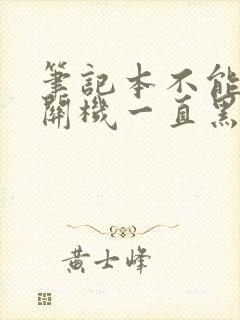 筆記本不能
開機一直黑
黃士峰